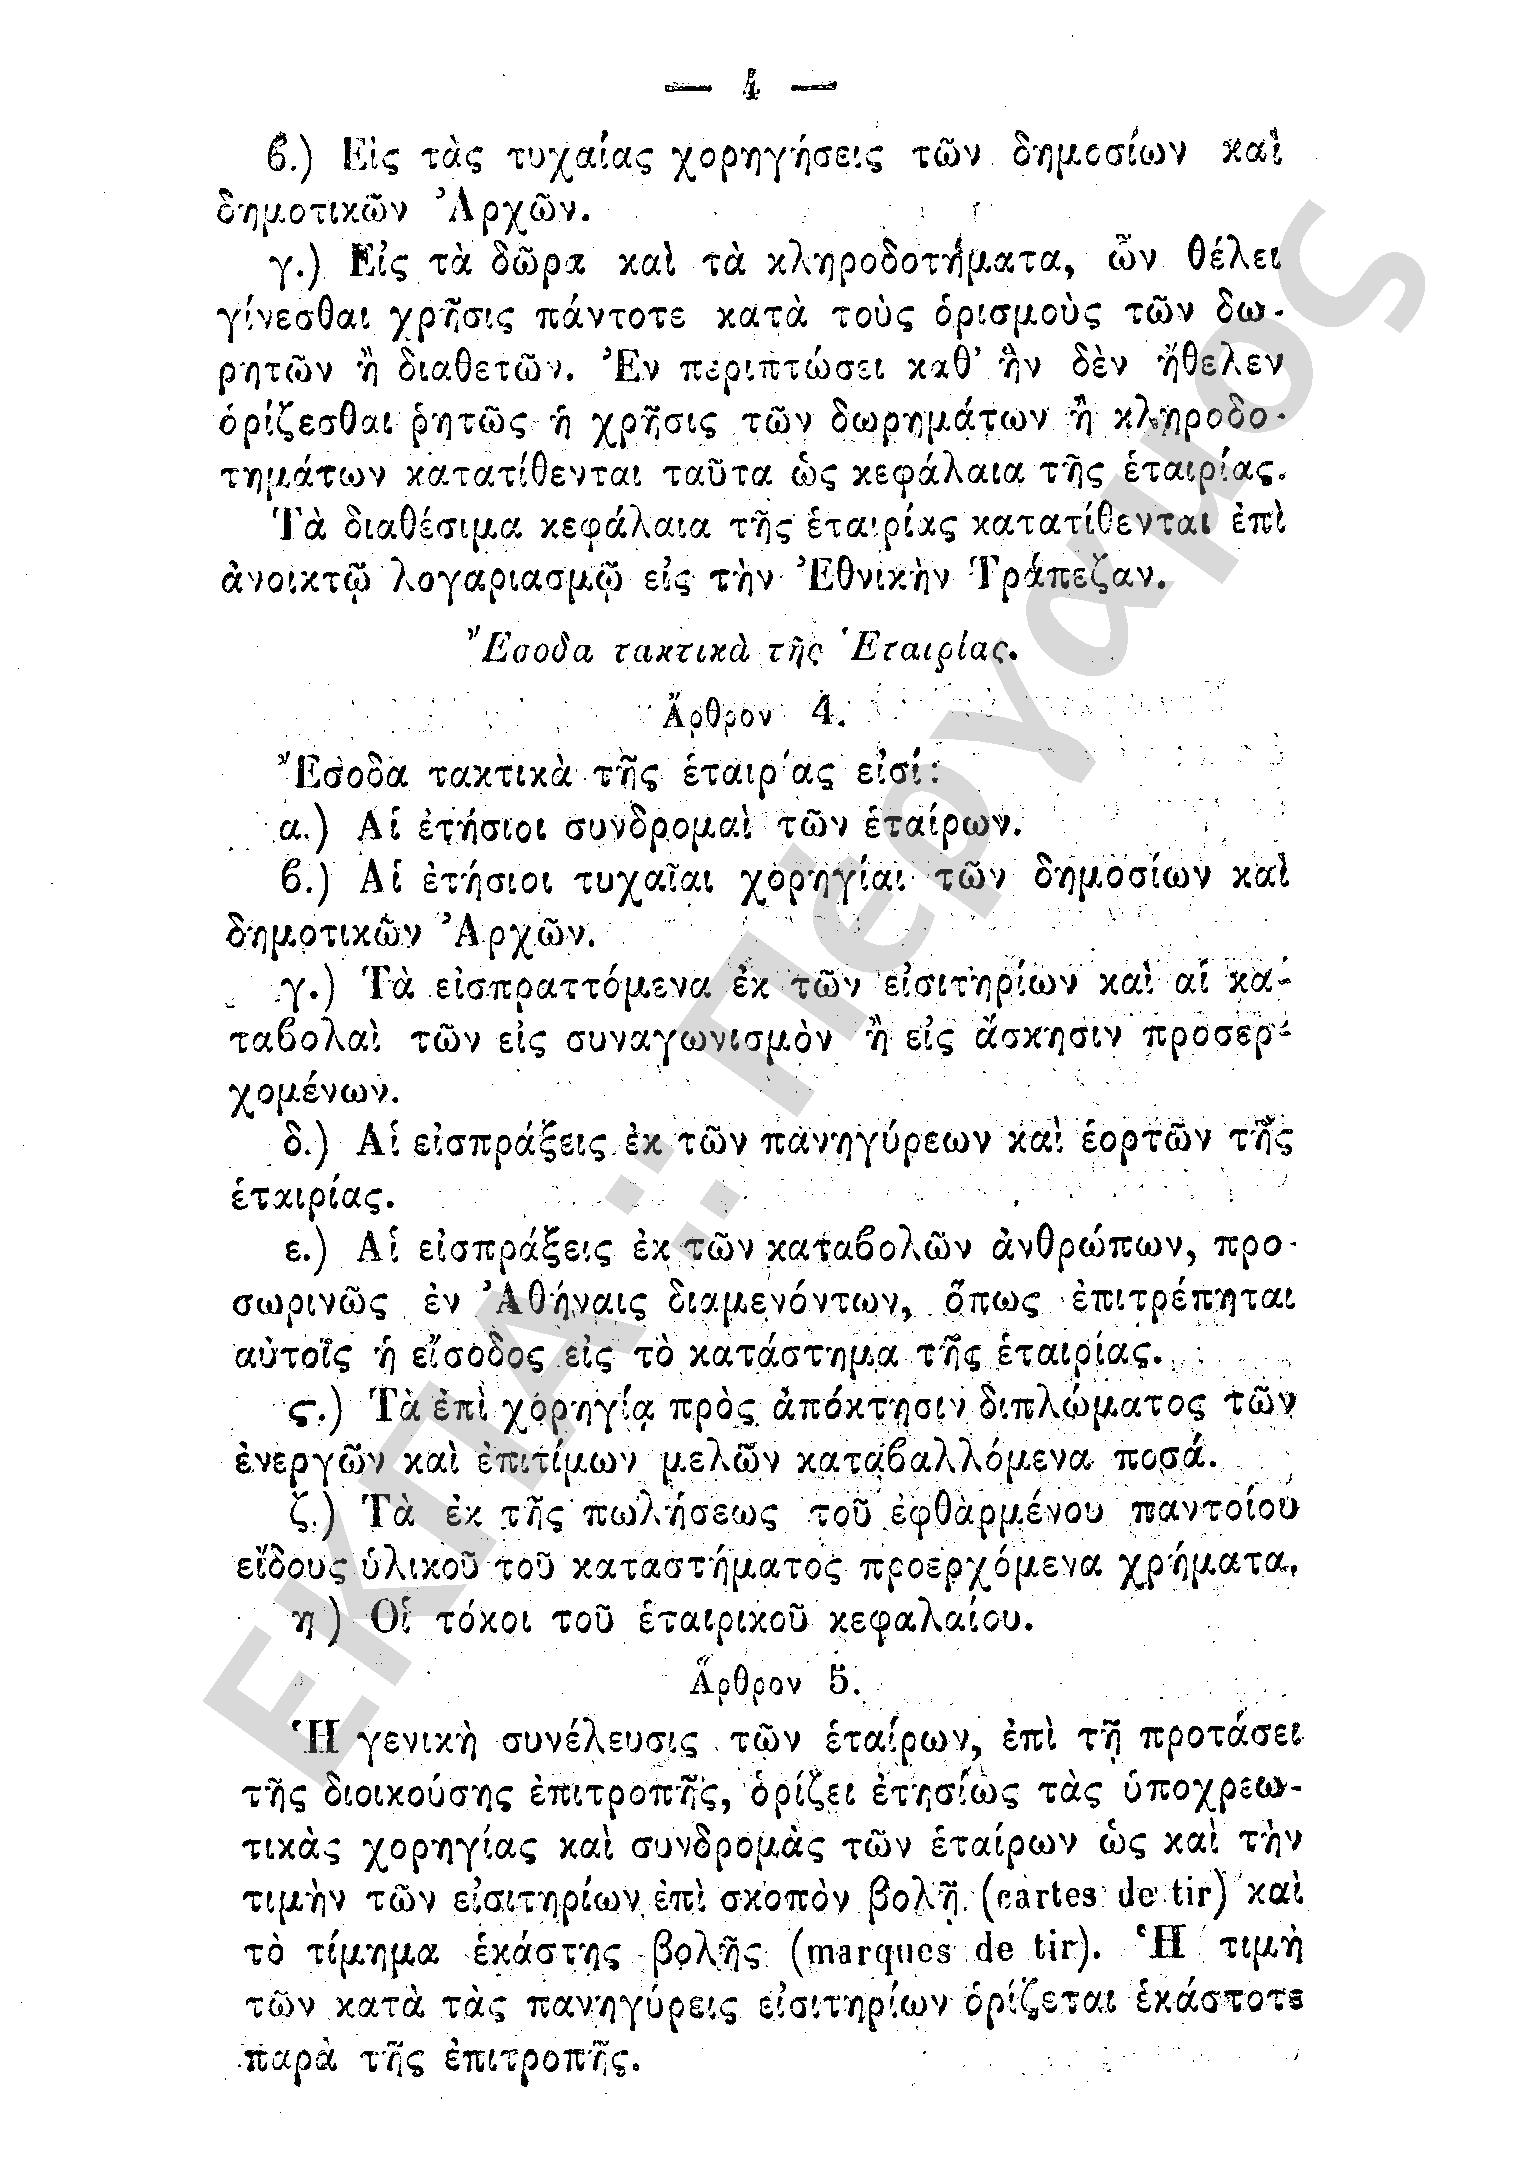 — 4 —
β.) Εἰς τὰς τυχαίας χορηγήσεις τῶν δημοσίων καὶ
δημοτικῶν Ἀρχῶν.
γ.) Εἰς τὰ δῶρα καὶ τὰ κληροδοτήματα, ὧν θέλει
γίνεσθαι χρῆσις πάντοτε κατὰ τοὺς ὁρισμοὺς τῶν δω-
ρητῶν ἢ διαθετῶν. Ἐν περιπτώσει καθ’ ἣν δὲν ἤθελεν
ὁρίζεσθαι ῥητῶς ἡ χρῆσις τῶν δωρημάτων ἢ κληροδο-
τημάτων κατατίθενται ταῦτα ὡς κεφάλαια τῆς ἑταιρίας.
Τὰ διαθέσιμα κεφάλαια τῆς ἑταιρίας κατατίθενται ἐπὶ
ἀνοικτῷ λογαριασμῷ εἰς τὴν Ἐθνικὴν Τράπεζαν.
Ἔσοδα τακτικὰ τῆς Ἑταιρίας.
Ἄρθρον 4.
Ἔσοδα τακτικὰ τῆς ἑταιρίας εἰσί:
α.) Αἱ ἐτήσιοι συνδρομαὶ τῶν ἑταίρων.
β.) Αἱ ἐτήσιοι τυχαῖαι χορηγίαι τῶν δημοσίων καὶ
δημοτικῶν Ἀρχῶν.
γ.) Τὰ εἰσπραττόμενα ἐκ τῶν εἰσιτηρίων καὶ αἱ κα-
ταβολαὶ τῶν εἰς συναγωνισμὸν ἢ εἰς ἄσκησιν προσερ-
χομένων.
δ.) Αἱ εἰσπράξεις ἐκ τῶν πανηγύρεων καὶ ἑορτῶν τῆς
ἑταιρίας.
ε.) Αἱ εἰσπράξεις ἐκ τῶν καταβολῶν ἀνθρώπων, προ-
σωρινῶς ἐν Ἀθήναις διαμενόντων, ὅπως ἐπιτρέπηται
αὐτοῖς ἡ εἴσοδος εἰς τὸ κατάστημα τῆς ἑταιρίας.
ς.) Τὰ ἐπὶ χορηγίᾳ πρὸς ἀπόκτησιν διπλώματος τῶν
ἐνεργῶν καὶ ἐπιτίμων μελῶν καταβαλλόμενα ποσά.
ζ.) Τὰ ἐκ τῆς πωλήσεως τοῦ ἐφθαρμένου παντοίου
εἴδους ὑλικοῦ τοῦ καταστήματος προερχόμενα χρήματα.
η ) Οἱ τόκοι τοῦ ἑταιρικοῦ κεφαλαίου.
Ἄρθρον 5.
Ἡ γενικὴ συνέλευσις τῶν ἑταίρων, ἐπὶ τῇ προτάσει
τῆς διοικούσης ἐπιτροπῆς, ὁρίζει ἐτησίως τὰς ὑποχρεω-
τικὰς χορηγίας καὶ συνδρομὰς τῶν ἑταίρων ὡς καὶ τὴν
τιμὴν τῶν εἰσιτηρίων ἐπὶ σκοπὸν βολῇ (cartes de tir) καὶ
τὸ τίμημα ἑκάστης βολῆς (marques de tir). Ἡ τιμὴ
τῶν κατὰ τὰς πανηγύρεις εἰσιτηρίων ὁρίζεται ἑκάστοτε
παρὰ τῆς ἐπιτροπῆς.
ΕΚΠΑ: Πέργαμος